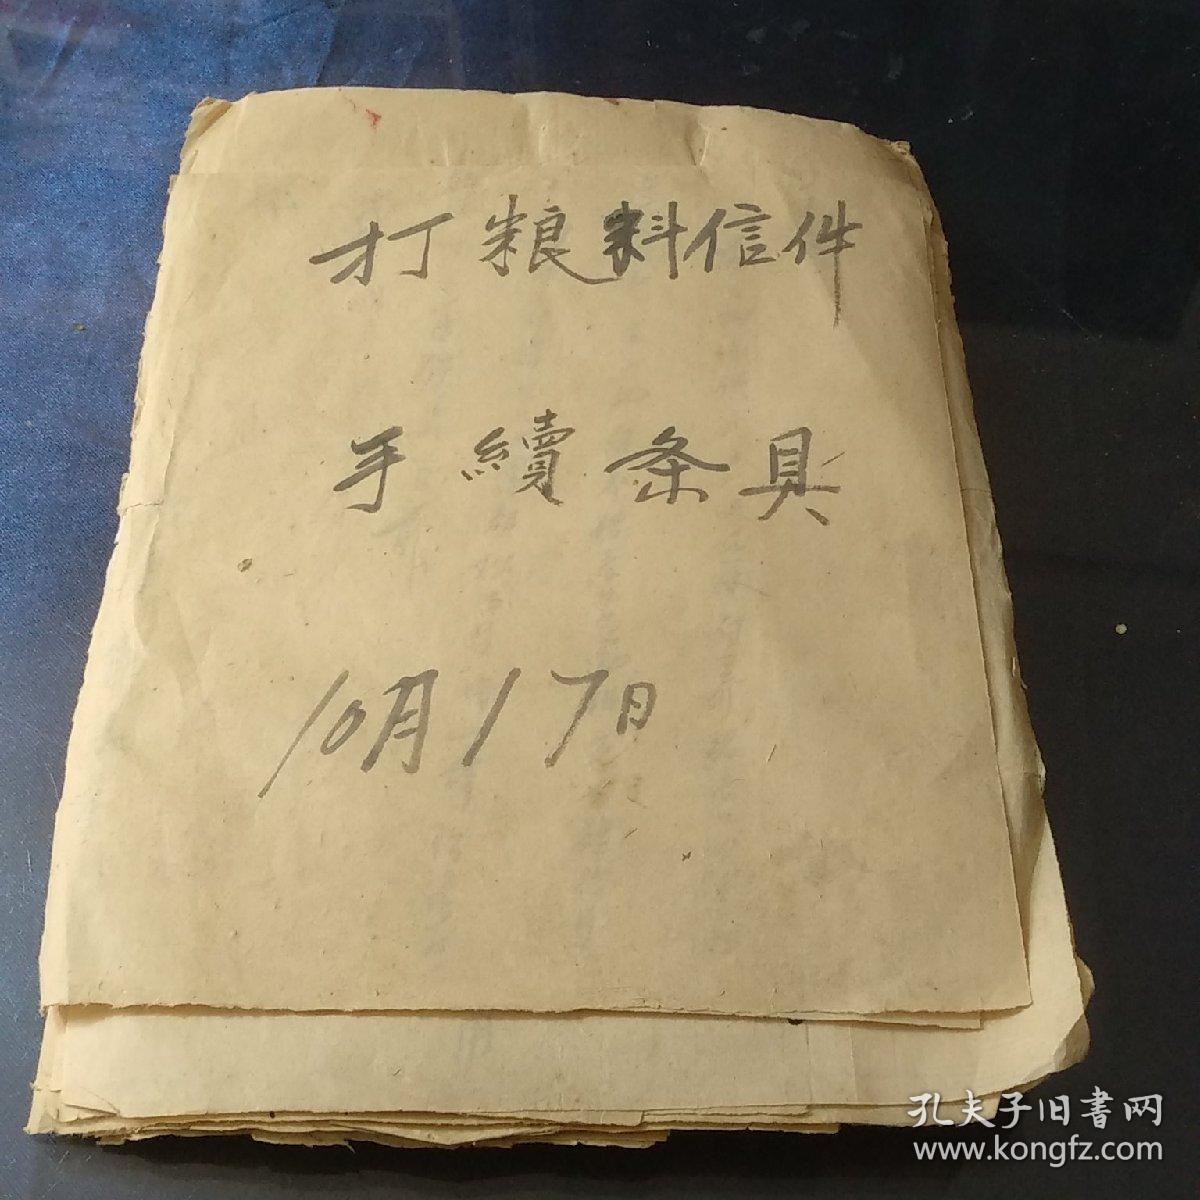 打粮料信件
手續条具
10月17日
孔夫子旧書网
www.kongfz.com